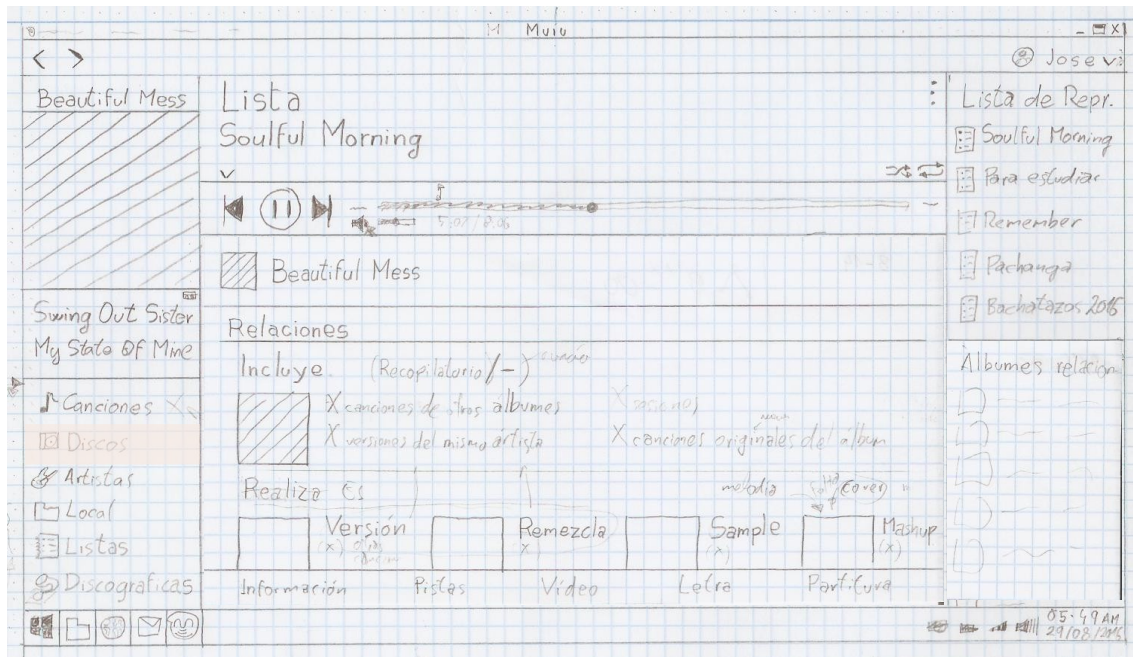 Muiu
Jose
Beautiful Mess
Swing Out Sister
My State Of Mine
Canciones
Discos
Artistas
Local
Listas
Discograficas
Lista
Soulful Morning
5:07/8:06
Beautiful Mess
Relaciones
Incluye (Recopilatorio/-)
X canciones de otros álbumes
X versiones del mismo artista
X canciones originales del álbum
Realiza Es
melodia
(cover)
Versión
(x)
Remezcla
x
Sample
(x)
Mashup
(x)
Información Pistas Vídeo Letra Partitura
Lista de Repr.
Soulful Morning
Para estudiar
Remember
Pachanga
Bachatazos 2015
Álbumes relacion
05:49 AM
29/08/2015